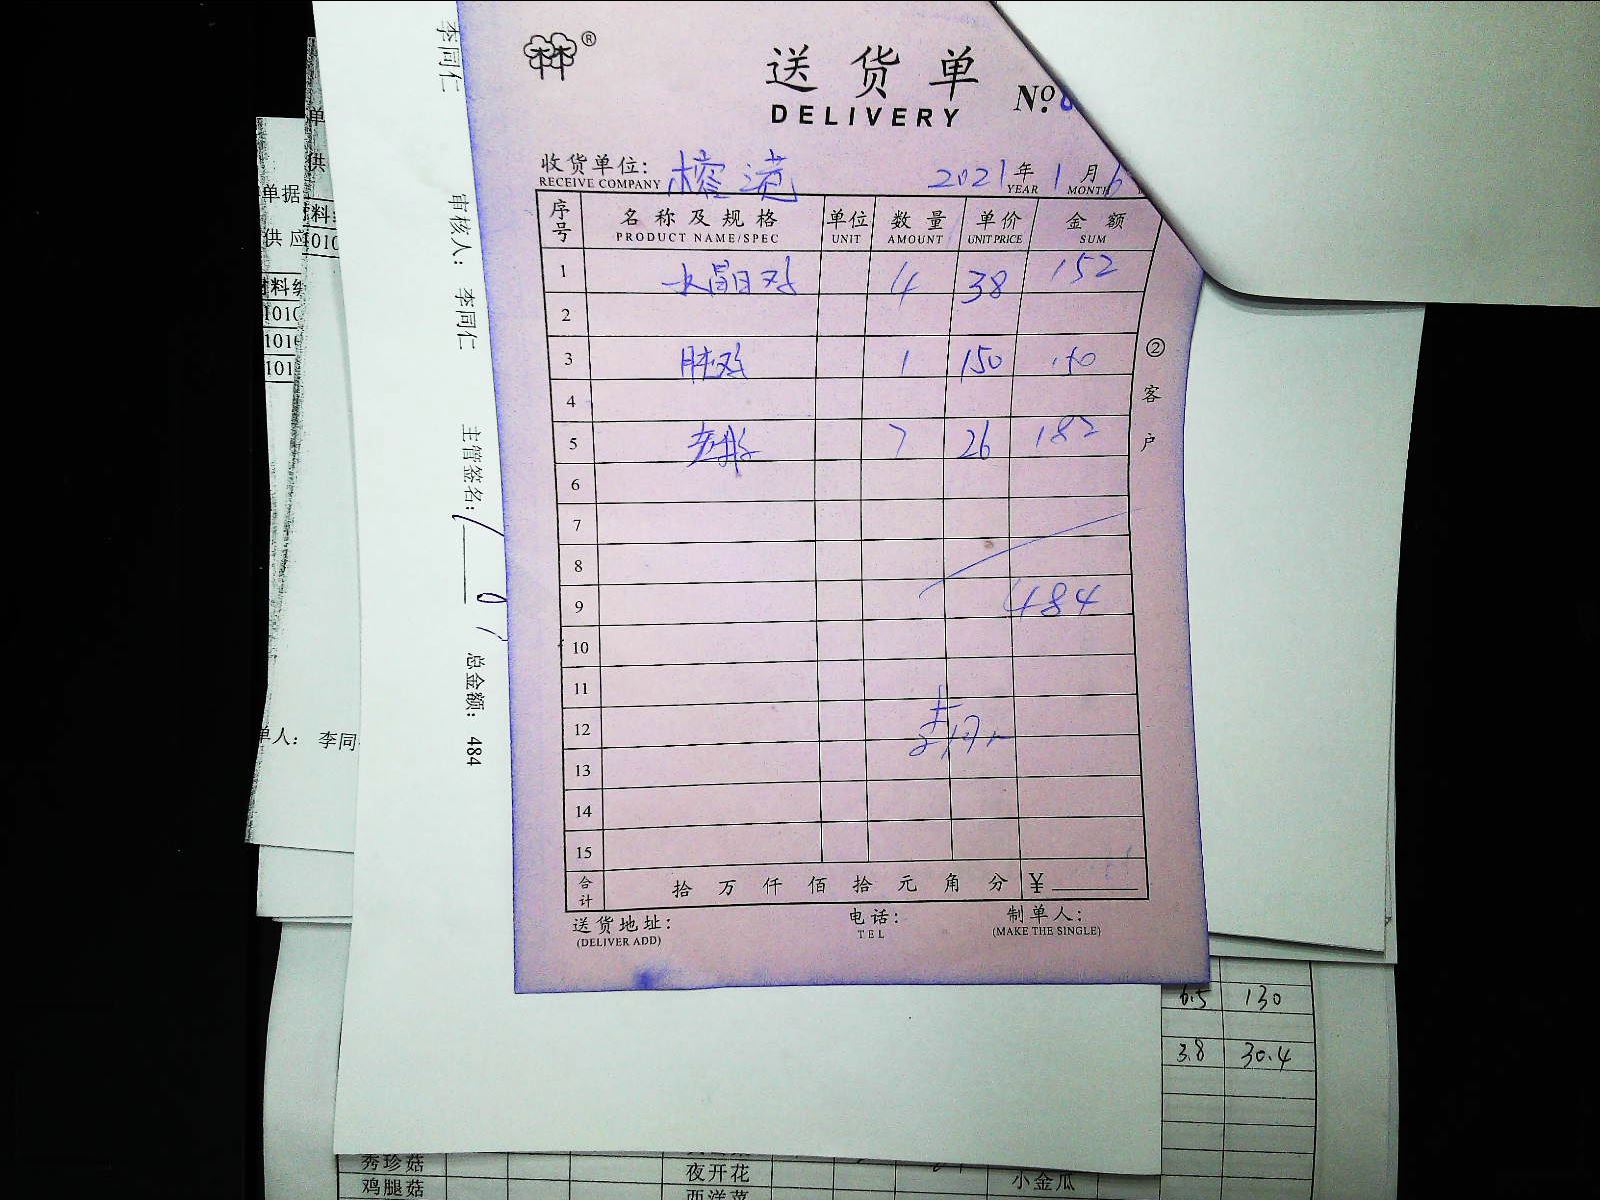 送货单
DELIVERY
No.
®
收货单位: 榕港
RECEIVE COMPANY
2021年1月6
YEAR MONTH
序号 名称及规格 单位 数量 单价 金额
PRODUCT NAME/SPEC UNIT AMOUNT UNIT PRICE SUM
1 4 38 152
2
3 1 150 150
4
5 7 26 182
6
7
8
9 484
10
11
12
13
14
15
合计 拾万仟佰拾元角分 ¥
送货地址: 电话: 制单人:
(DELIVER ADD) TEL (MAKE THE SINGLE)
② 客户
李同仁
审核人: 李同仁
主管签名:
总金额: 484
单
供
料
010
单据
供应
料
1010
1010
101
单人: 李同
6.5 130
3.8 30.4
秀珍菇 夜开花 小金瓜
鸡腿菇 西洋菜